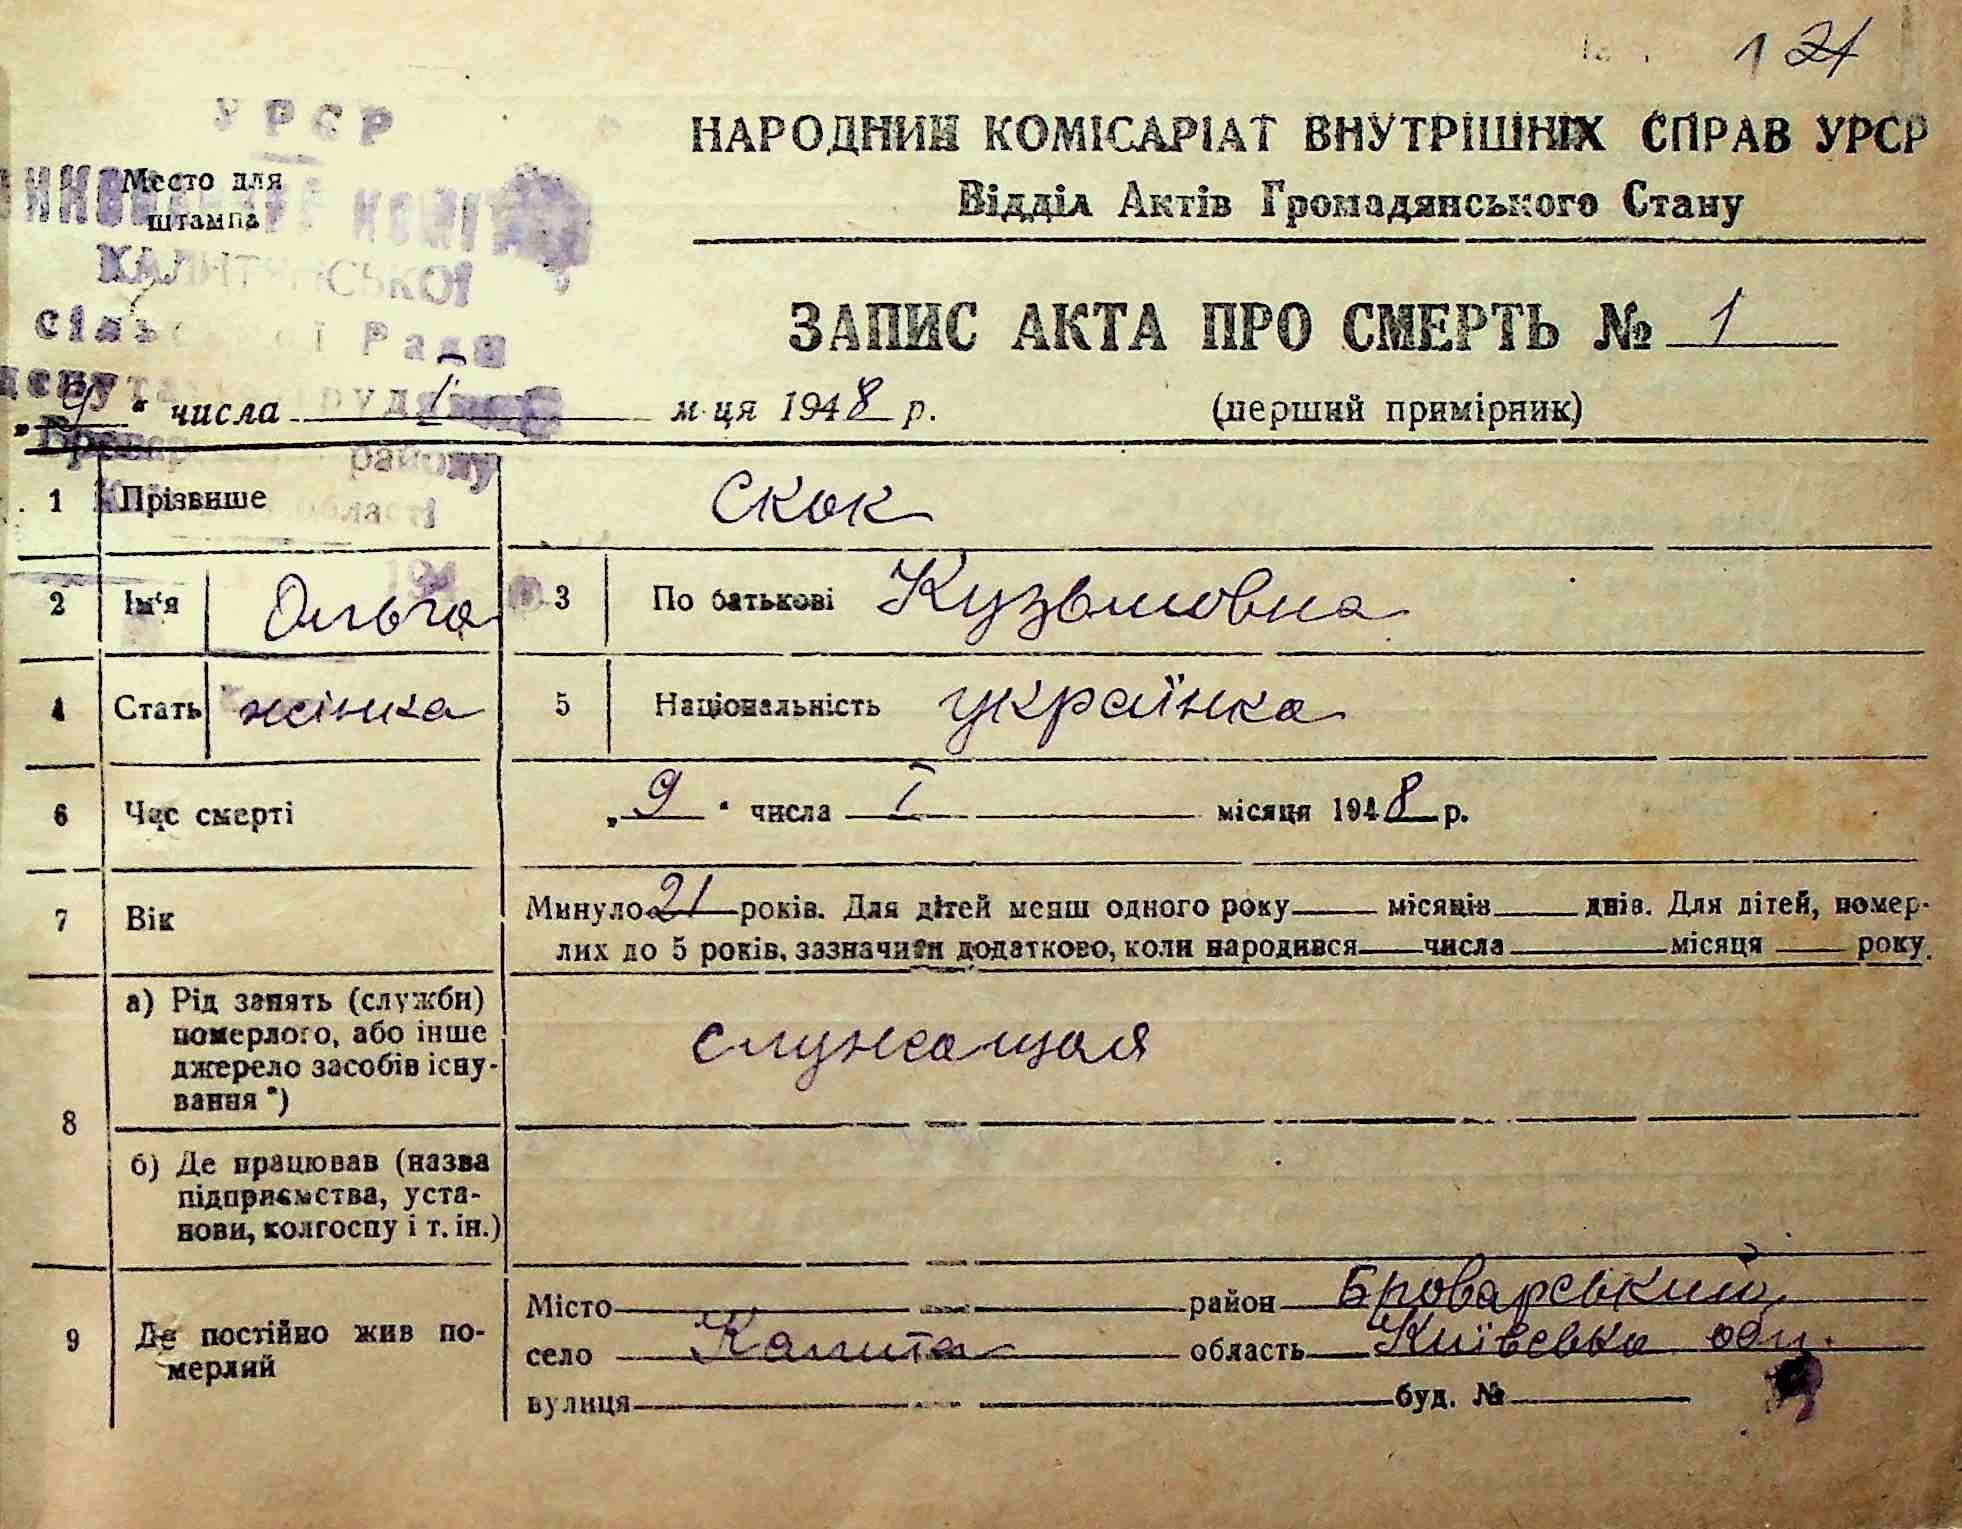 1 21
УРСР
Место для
штампа
НАРОДНИЙ КОМІСАРІАТ ВНУТРІШНІХ СПРАВ УРСР
Відділ Актів Громадянського Стану
КАЛИТЯНСЬКОЇ
сільської Ради
ЗАПИС АКТА ПРО СМЕРТЬ № 1
„9“ числа I м-ця 1948 р. (перший примірник)
району
області
1 Прізвище Скок
2 Ім'я Ольга 3 По батькові Кузьмовна
4 Стать жінка 5 Національність українка
6 Час смерті „9“ числа I місяця 1948 р.
7 Вік Минуло 21 років. Для дітей менш одного року місяців днів. Для дітей, помер-
лих до 5 років, зазначити додатково, коли народився числа місяця року.
8 а) Рід занять (служби)
померлого, або інше
джерело засобів існу-
вання *)
служащая
б) Де працював (назва
підприємства, уста-
нови, колгоспу і т. ін.)
9 Де постійно жив по-
мерлий
Місто район Броварський
село Калита область Київська обл.
вулиця буд. №